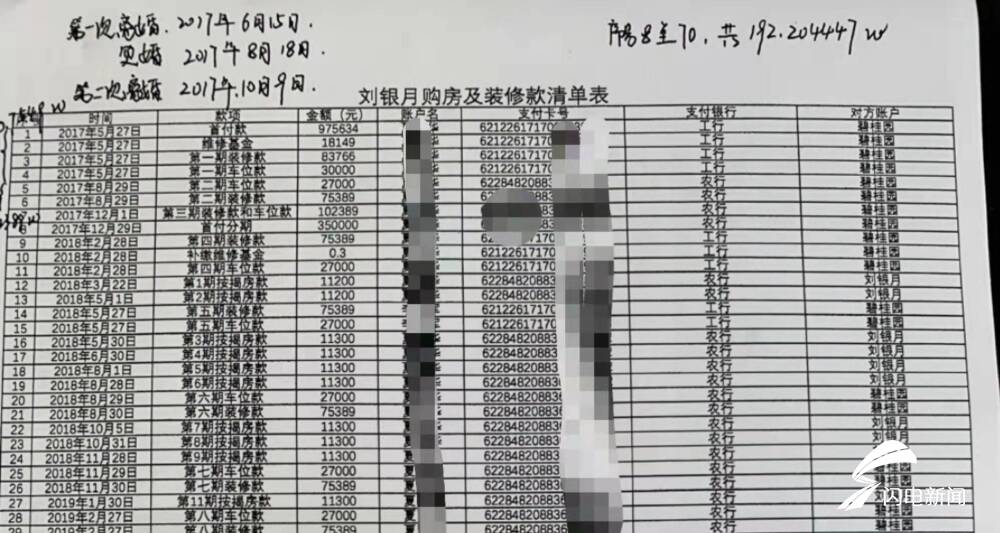 第一次离婚：2017年6月15日.
复婚 2017年8月18日.
第二次离婚 2017年.10月9日.
序号8至70，共192.204447w
刘银月购房及装修款清单表
时间 款项 金额（元） 账户名 支付卡号 支付银行 对方账户
1 2017年5月27日 首付款 975634 62122617170 工行 碧桂园
2 2017年5月27日 维修基金 18149 62122617170 工行 碧桂园
3 2017年5月27日 第一期装修款 83766 62122617170 工行 碧桂园
4 2017年5月27日 第一期车位款 30000 62122617170 工行 碧桂园
5 2017年8月29日 第二期车位款 27000 6228482088 农行 碧桂园
6 2017年8月29日 第二期装修款 75389 6228482088 农行 碧桂园
2017年12月1日 第三期装修款和车位款 102389 农行 碧桂园
2017年12月29日 首付分期 350000 农行 碧桂园
9 2018年2月28日 第四期装修款 75389 6212261717 工行 碧桂园
10 2018年2月28日 补缴维修基金 0.3 6212261717 工行 碧桂园
11 2018年2月28日 第四期车位款 27000 6212261717 工行 碧桂园
12 2018年3月22日 第1期按揭房款 11200 62284820883 农行 刘银月
13 2018年5月1日 第2期按揭房款 11200 62284820883 农行 刘银月
14 2018年5月27日 第五期装修款 75389 6212261717 工行 碧桂园
15 2018年5月27日 第五期车位款 27000 6212261717 工行 碧桂园
16 2018年5月30日 第3期按揭房款 11300 62284820883 农行 刘银月
17 2018年6月30日 第4期按揭房款 11300 62284820883 农行 刘银月
18 2018年8月1日 第5期按揭房款 11300 62284820883 农行 刘银月
19 2018年8月28日 第6期按揭房款 11300 62284820883 农行 刘银月
20 2018年8月29日 第六期车位款 27000 622848208836 农行 碧桂园
21 2018年8月30日 第六期装修款 75389 622848208836 农行 碧桂园
22 2018年10月5日 第7期按揭房款 11300 622848208836 农行 刘银月
23 2018年10月31日 第8期按揭房款 11300 622848208836 农行 刘银月
24 2018年11月28日 第9期按揭房款 11300 622848208836 农行
25 2018年11月29日 第七期车位款 27000 622848208836 农行
26 2018年11月30日 第七期装修款 75389 622848208836 农行
27 2019年1月30日 第11期按揭房款 11300 622848208836 农行
28 2019年2月27日 第八期车位款 27000 622848208836 农行 碧桂园
29 2019年2月27日 第八期装修款 75389 622848208836 农行 碧桂园
闪电新闻